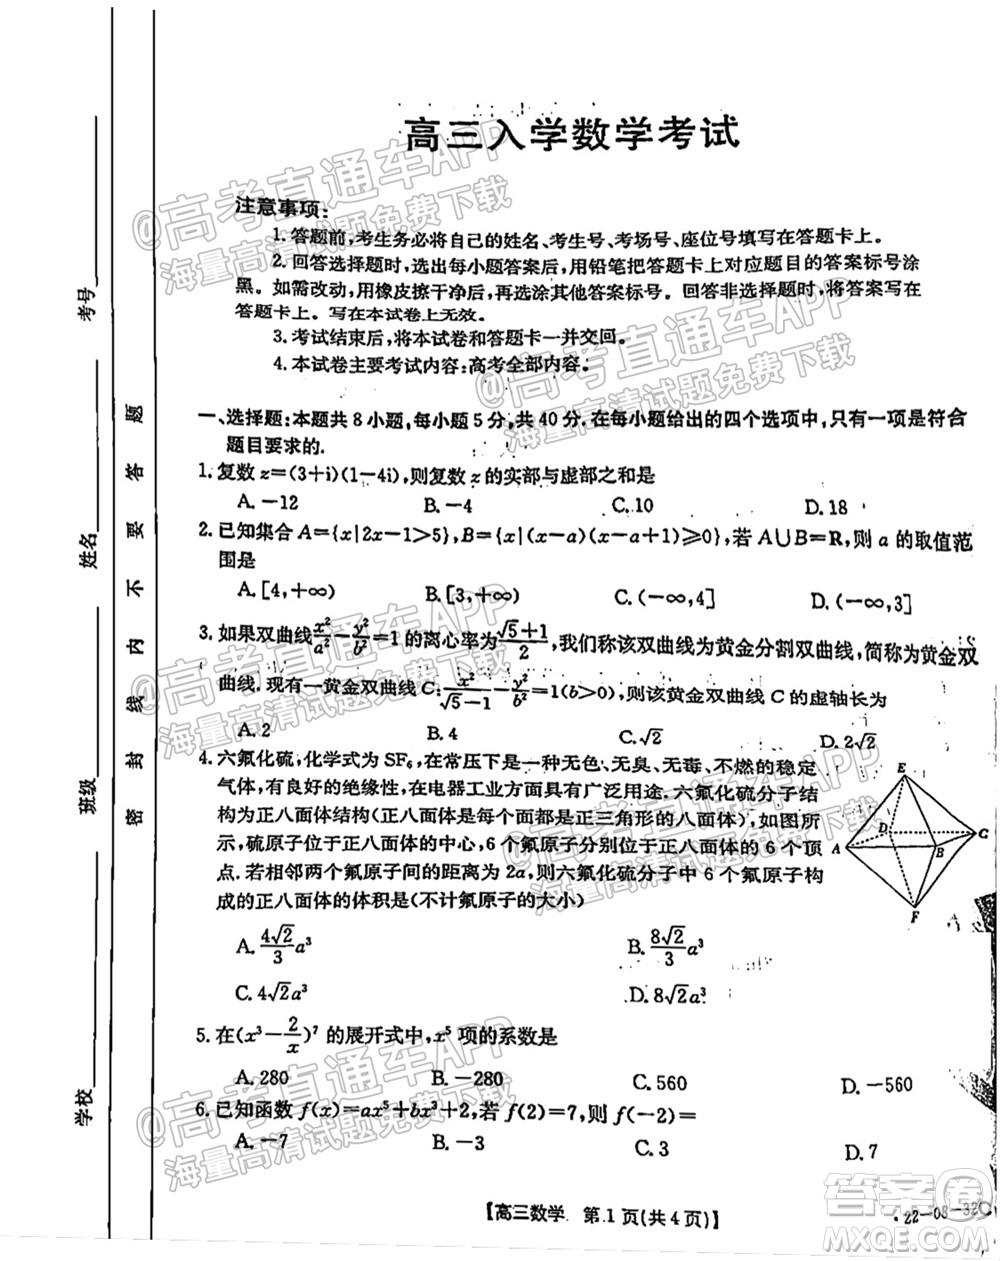 高三入学数学考试
注意事项:
1. 答题前,考生务必将自己的姓名、考生号、考场号、座位号填写在答题卡上。
2. 回答选择题时,选出每小题答案后,用铅笔把答题卡上对应题目的答案标号涂
黑。如需改动,用橡皮擦干净后,再选涂其他答案标号。回答非选择题时,将答案写在
答题卡上。写在本试卷上无效。
3. 考试结束后,将本试卷和答题卡一并交回。
4. 本试卷主要考试内容:高考全部内容。
一、选择题:本题共8小题,每小题5分,共40分.在每小题给出的四个选项中,只有一项是符合
题目要求的.
1. 复数z=(3+i)(1-4i),则复数z的实部与虚部之和是
A. -12 B. -4 C. 10 D. 18
2. 已知集合A={x|2x-1>5},B={x|(x-a)(x-a+1)≥0},若A∪B=R,则a的取值范
围是
A. [4,+∞) B. [3,+∞) C. (-∞,4] D. (-∞,3]
3. 如果双曲线x²/a²-y²/b²=1的离心率为(√5+1)/2,我们称该双曲线为黄金分割双曲线,简称为黄金双
曲线.现有一黄金双曲线C:x²/(√5-1)-y²/b²=1(b>0),则该黄金双曲线C的虚轴长为
A. 2 B. 4 C. √2 D. 2√2
4. 六氟化硫,化学式为SF₆,在常压下是一种无色、无臭、无毒、不燃的稳定
气体,有良好的绝缘性,在电器工业方面具有广泛用途.六氟化硫分子结
构为正八面体结构(正八面体是每个面都是正三角形的八面体),如图所
示,硫原子位于正八面体的中心,6个氟原子分别位于正八面体的6个顶
点.若相邻两个氟原子间的距离为2a,则六氟化硫分子中6个氟原子构
成的正八面体的体积是(不计氟原子的大小)
E
D
C
A
B
F
A. 4√2/3 a³ B. 8√2/3 a³
C. 4√2a³ D. 8√2a³
5. 在(x³-2/x)⁷的展开式中,x⁵项的系数是
A. 280 B. -280 C. 560 D. -560
6. 已知函数f(x)=ax⁵+bx³+2,若f(2)=7,则f(-2)=
A. -7 B. -3 C. 3 D. 7
【高三数学 第1页(共4页)】
22-08-32C
学校 班级 姓名 考号
密 封 线 内 不 要 答 题
@高考直通车APP
海量高清试题免费下载
@高考直通车APP
海量高清试题免费下载
@高考直通车APP
海量高清试题免费下载
@高考直通车APP
海量高清试题免费下载
@高考直通车APP
海量高清试题免费下载
答案圈
MXQE.COM